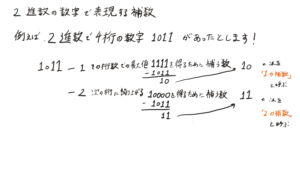 2進数の数字で表現する補数
例えば、2進数で4桁の数字 1011 があったとします!
1011 - 1 その桁数での最大値1111を得るために補う数 10 ← これを
- 1011 「1の補数」
10 と呼ぶ
- 2 次の桁に繰り上がる10000を得るために補う数 11 ← これを
- 1011 「2の補数」
11 と呼ぶ